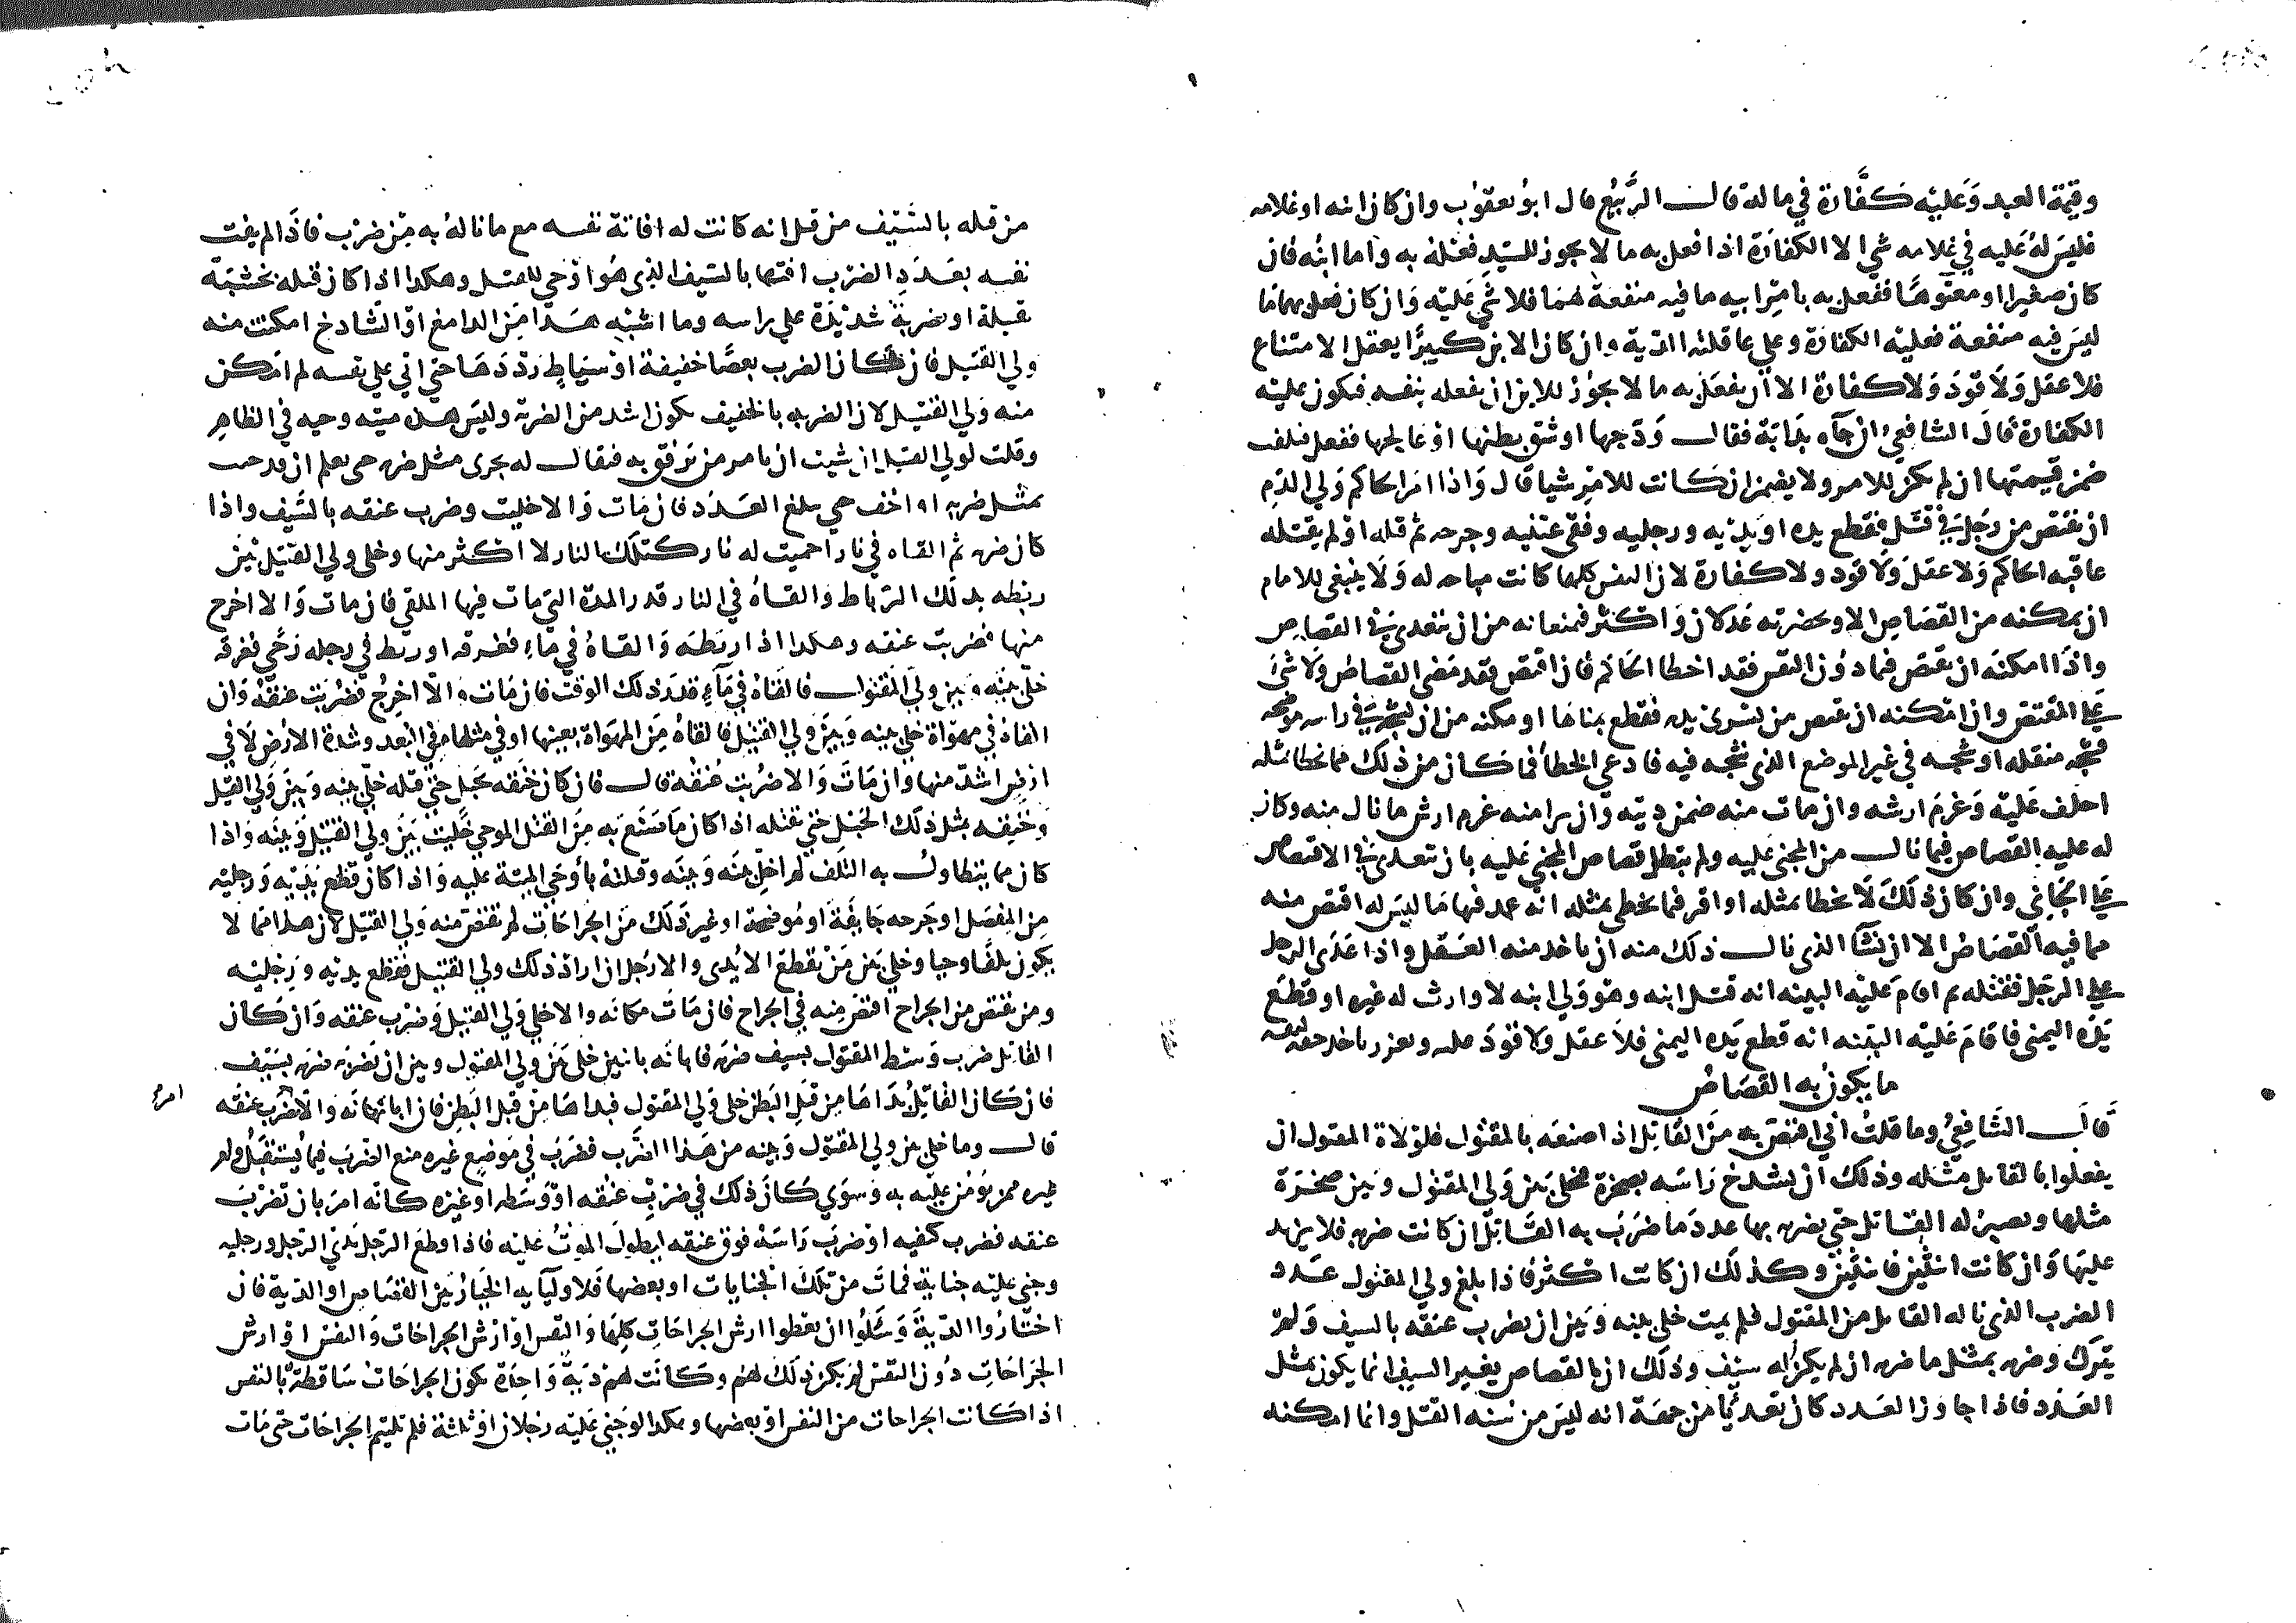 وقيمة العبد وَعليْه كَفَّارة في ماله قال الرَّبيْع قال ابوُ يعقوُب وان كان ابنه او غلامه
فليسَ لهُ عَليه في غلامه شي الا الكفارَة اذا فعل به ما لا يجوز للسيّدِ فعْلهُ به وَاما ابنُه فان
كان صغيرا او معتوهًا ففعل به بامْرِ ابيه ما فيه منفعةٌ لهمَا فلا شيَ عَليْه وَان كان فعل بهمَا مَا
ليسَ فيه منفعة فعليْه الكفارَة وعلي عاقلته الدّية وان كان الابن كبيرًا يعقل الامتناع
فلا عقل وَلاَ قودَ وَلا كفارة الا أن يفعَل به ما لا يجوُز للابن ان يفعله بنفسه فيكون عليْه
الكفارة قالَ الشافعي ان جآه بدَابّة فقال وَدّجها او شق بطنها اوْ عالجها ففعل فتلفت
ضمن قيمتها ان لم يكن للامر ولا يضمن ان كَانت للامِرِ شيا قال وَاذا امَرَ الحاكم وَلي الدّمِ
ان يقتص من رَجُل في قتْل فقطع يده اوْ يديْه ورجليه وفقى عيْنيه وجرحه ثم قتله اوْ لم يقتله
عاقبه الحاكم وَلا عقلَ وَلا قود ولا كفارة لان النفس كلها كانت مباحه له وَلا ينبغى للامام
ان يمكنه من القصَاصِ الا وبحضرته عَدلان وَاكثر فيمنعانه من ان يتعدى في القصَاصِ
واذَا امكنَه ان يقتصّ فيما دوُن النفس فقد اخطا الحَاكم فان اقتص فقد مَضى القصَاصُ وَلا شئَ
علَى المقتص وان امْكنه ان يقتص من يسرى يديه فقطع يمناهَا او مكنه من ان يشجّه في راسه موضحه
فشجّه منقله او شجّه في غير الموضع الذى شجّه فيه فادعي الخطأ فما كَان من ذلك مما يخطا بمثله
احلف عَليْه وَغرمَ ارشه وان مات منه ضمن ديته وَان برا منه غرم ارش ما نال منه وكان
له عليه القصاص فيما نال من المجنى عَليه ولم يبطل قصاص المجني عَليه بان تعدى في الاقتصاص
علَى الجَانِي وان كان ذلكَ لا يخطا بمثله او اقر فيما يخطى بمثله انه عمد فيهَا مَا ليسَ له اقتص منه
مما فيه القصَاصُ الا ان يشآ الذى نال ذلك منه ان ياخد منه العَقل واذا عَدَى الرجل
على الرجُل فقتله ثم اقامَ عَليْه البينه انه قتل ابنه وهُوَ وَلي ابنه لا وارث له غيره او قطعَ
يَدَه اليمنى فاقامَ عَليْه البيّنه انه قطع يَده اليمنى فلاَ عقل وَلا قوَدَ عليه ويعزر باخذ حقه لنفسه
ما يَكوُن به القصَاصُ
قَالَ الشَافِعيُ وما قلتُ اني اقتصّ به مِنَ القَاتِل اذا صنعَه بالمقتُول فلوُلاة المقتول ان
يفعلوا بالقاتل مثْله وذلك انْ يشدخَ رَاسَه بصخرة فيخلى بيَن وَلي المقتُول وبَين صخرَة
مثلها ويصبرُ له القاتل حتّي يضربه بها عددَ مَا ضَرَبَ به القَاتِل ان كانت ضربه فلا يزيد
عليْهَا وَان كانت اثنْتَين فاثنتين وكذلك ان كانت اكثرُ فاذا بلغ ولي المقتول عدَد
الضرب الذى ناله القاتل من المقتول فلم يمت خلى بيْنه وَبين ان يضرب عنقه بالسيف وَلم
يترك وضربه بمثل ما ضربه ان لم يكن له سيْف وذلكَ ان القصاص بغير السيف انما يكون بمثل
العَدَد فاذا جاوز العَدد كان تعدّيًا من جهَة انه ليسَ من سنه القتل وانما امكنه
من قتله بالسَّيْف من قبل انه كانت له افاتة نفسه مع ما نالهُ به مِنْ ضرْب فاذَا لم يفت
نفسه بعَدَدِ الضرْب افتها بالسّيف الذى هُوَ اوْحي للقتل وهكذا اذا كان قتله بخشبَة
ثقيلة او ضربةً شديْدَة علي راسه وما اشبْه هَذَا مِنَ الدامغِ اوْ الشّادخِ امكنت منه
ولي القتيل فان كان الضرب بعصًا خفيفة اوْ سيَاطٍ رَدّدَهَا حتي اتي علي نفسه لم امكن
منه وَلي القتيل لان الضربه بالخفيف يكون اشد من الضربة وليسَ هذه ميته وحيه في الظاهِرِ
وقلت لولي القتيل ان شيت ان يامر من يَرفق به فيقال له تحرى مثل ضربه حى يعلم ان قد جيت
بمثل ضربه او اخف حي يبلغ العَدَد فان مَات وَالا خليت وضرب عنقه بالسَّيف واذا
كان ضربه ثم القاه في نار احميت له نار كتلكَ النار لا اكثر منها وخلى ولي القتيْل بيْنَ
ربطه بذلكَ الرّباط وَالقاهُ في النار قدر المدّة التي مات فيها الملقي فان مات وَالا اخرج
منها فضربتْ عنقه وهكذا اذا ربَطَه وَالقاهُ في مَاءِ فغرقه او ربط في رجله رَحًي فغرقه
خلّي بينه وَبين ولي المقتول فالقاهُ في مَآءٍ قدر ذلك الوقت فان مَات والاّ اخرِجُ فضُربت عنقهُ وَان
القاهُ في مهوَاة خلي بينه وَبَينَ ولي القتيل فالقاهُ مِنَ المهوَاة بعينها او في مثلها في البعد وشدة الارْضِ لا في
ارْض اشدّ منها وان مَاتَ وَالا ضرُبت عُنقهُ قال فان كان خَنقه بحَبلِ حَتي قتله خلّي بينه وَبينَ وَلي القتيل
وَخنقِه بمثل ذلكَ الحبْلِ حتي يقتله اذا كان مَا صَنَعَ به مِنَ القتل الموحي خُليت بَينَ ولي القتيْل وَبينَه وَاذا
كان مما يتطاول به التلف لم اخلّ بينَه وَبينَه وقتلهُ بأَوحَي الميتة عليه وَاذا كان قطع يَديْه وَرجليْه
مِنِ المفصَل او جَرحه جَايفَةً او مُوضحة او غير ذَلكَ مِنَ الجراحَات لم يقتص منه وَلي القتيل لان هذا مما لا
يكون تلفًا وحيا وخلي بَين مَنْ يقطع الايْدى والارْجل ان ارادَ ذلك ولي القتيل فقطع يديْه وَرجليْه
ومن يقتص من الجراح اقتصّ مِنه في الجراح فان مَات مكانه والا خلي وَلي القتيل وَضرْب عنقه وَان كَان
القاتل ضرب وَسَط المقتول بسيف ضربة فابانه باثنين خلى بَين ولي المقتول وبين ان يضربَه ضربة بسَيْف
فان كَان القاتِلُ بَدَاهَا مِن قِبَلِ البَطن خلى وَلي المقتول فبداهَا مِن قبل البَطن فان ابانه ابانَه والا امر بضرْب عنقه
قال وما خلي بين ولي المقتول وَبينه من هَذا الضرْب فضَرَبَ في مَوضعٍ غيره منع الضرْبَ فيما يُستقبَلُ ولو
غيره ممن يُؤمَن عليْه به وَسوَي كَانَ ذلكَ في ضرْبِ عُنقه اوْ وَسَطه او غيْره كانه امر بان تضرب
عنقه فضرب كتفيه اوْ ضربَ رَاسَهُ فوق عنقه ليطولَ الموتُ عليْه فاذا قطعَ الرّجل يَدَيْ الرّجل ورجليه
وجني عليْه جنايةً فماتَ من تلكَ الجنايات او بعضها فَلاوليَآيه الخيَارُ بين القصَاصِ او الدّية فان
اختَارُوا الدّيةَ وَسَئَلُوا ان يعطوا ارش الجرَاحَاتِ كلِهَا وَالنفس اوْ ارشَ الجراحَات وَالنفس اوْ ارش
الجرَاحَاتِ دُوْن النفس لم يكن ذلكَ لهمْ وكَانَت لهمْ ديَةً وَاحِدَة يكون الجراحَاتْ سَاقطة بالنفس
اذا كَانت الجراحات من النفس اوْ بعضها وهكذا لوْ جَني عَليْه رَجلان اوْ ثلثة فلم تلتيم الجراحَات حتى مَات